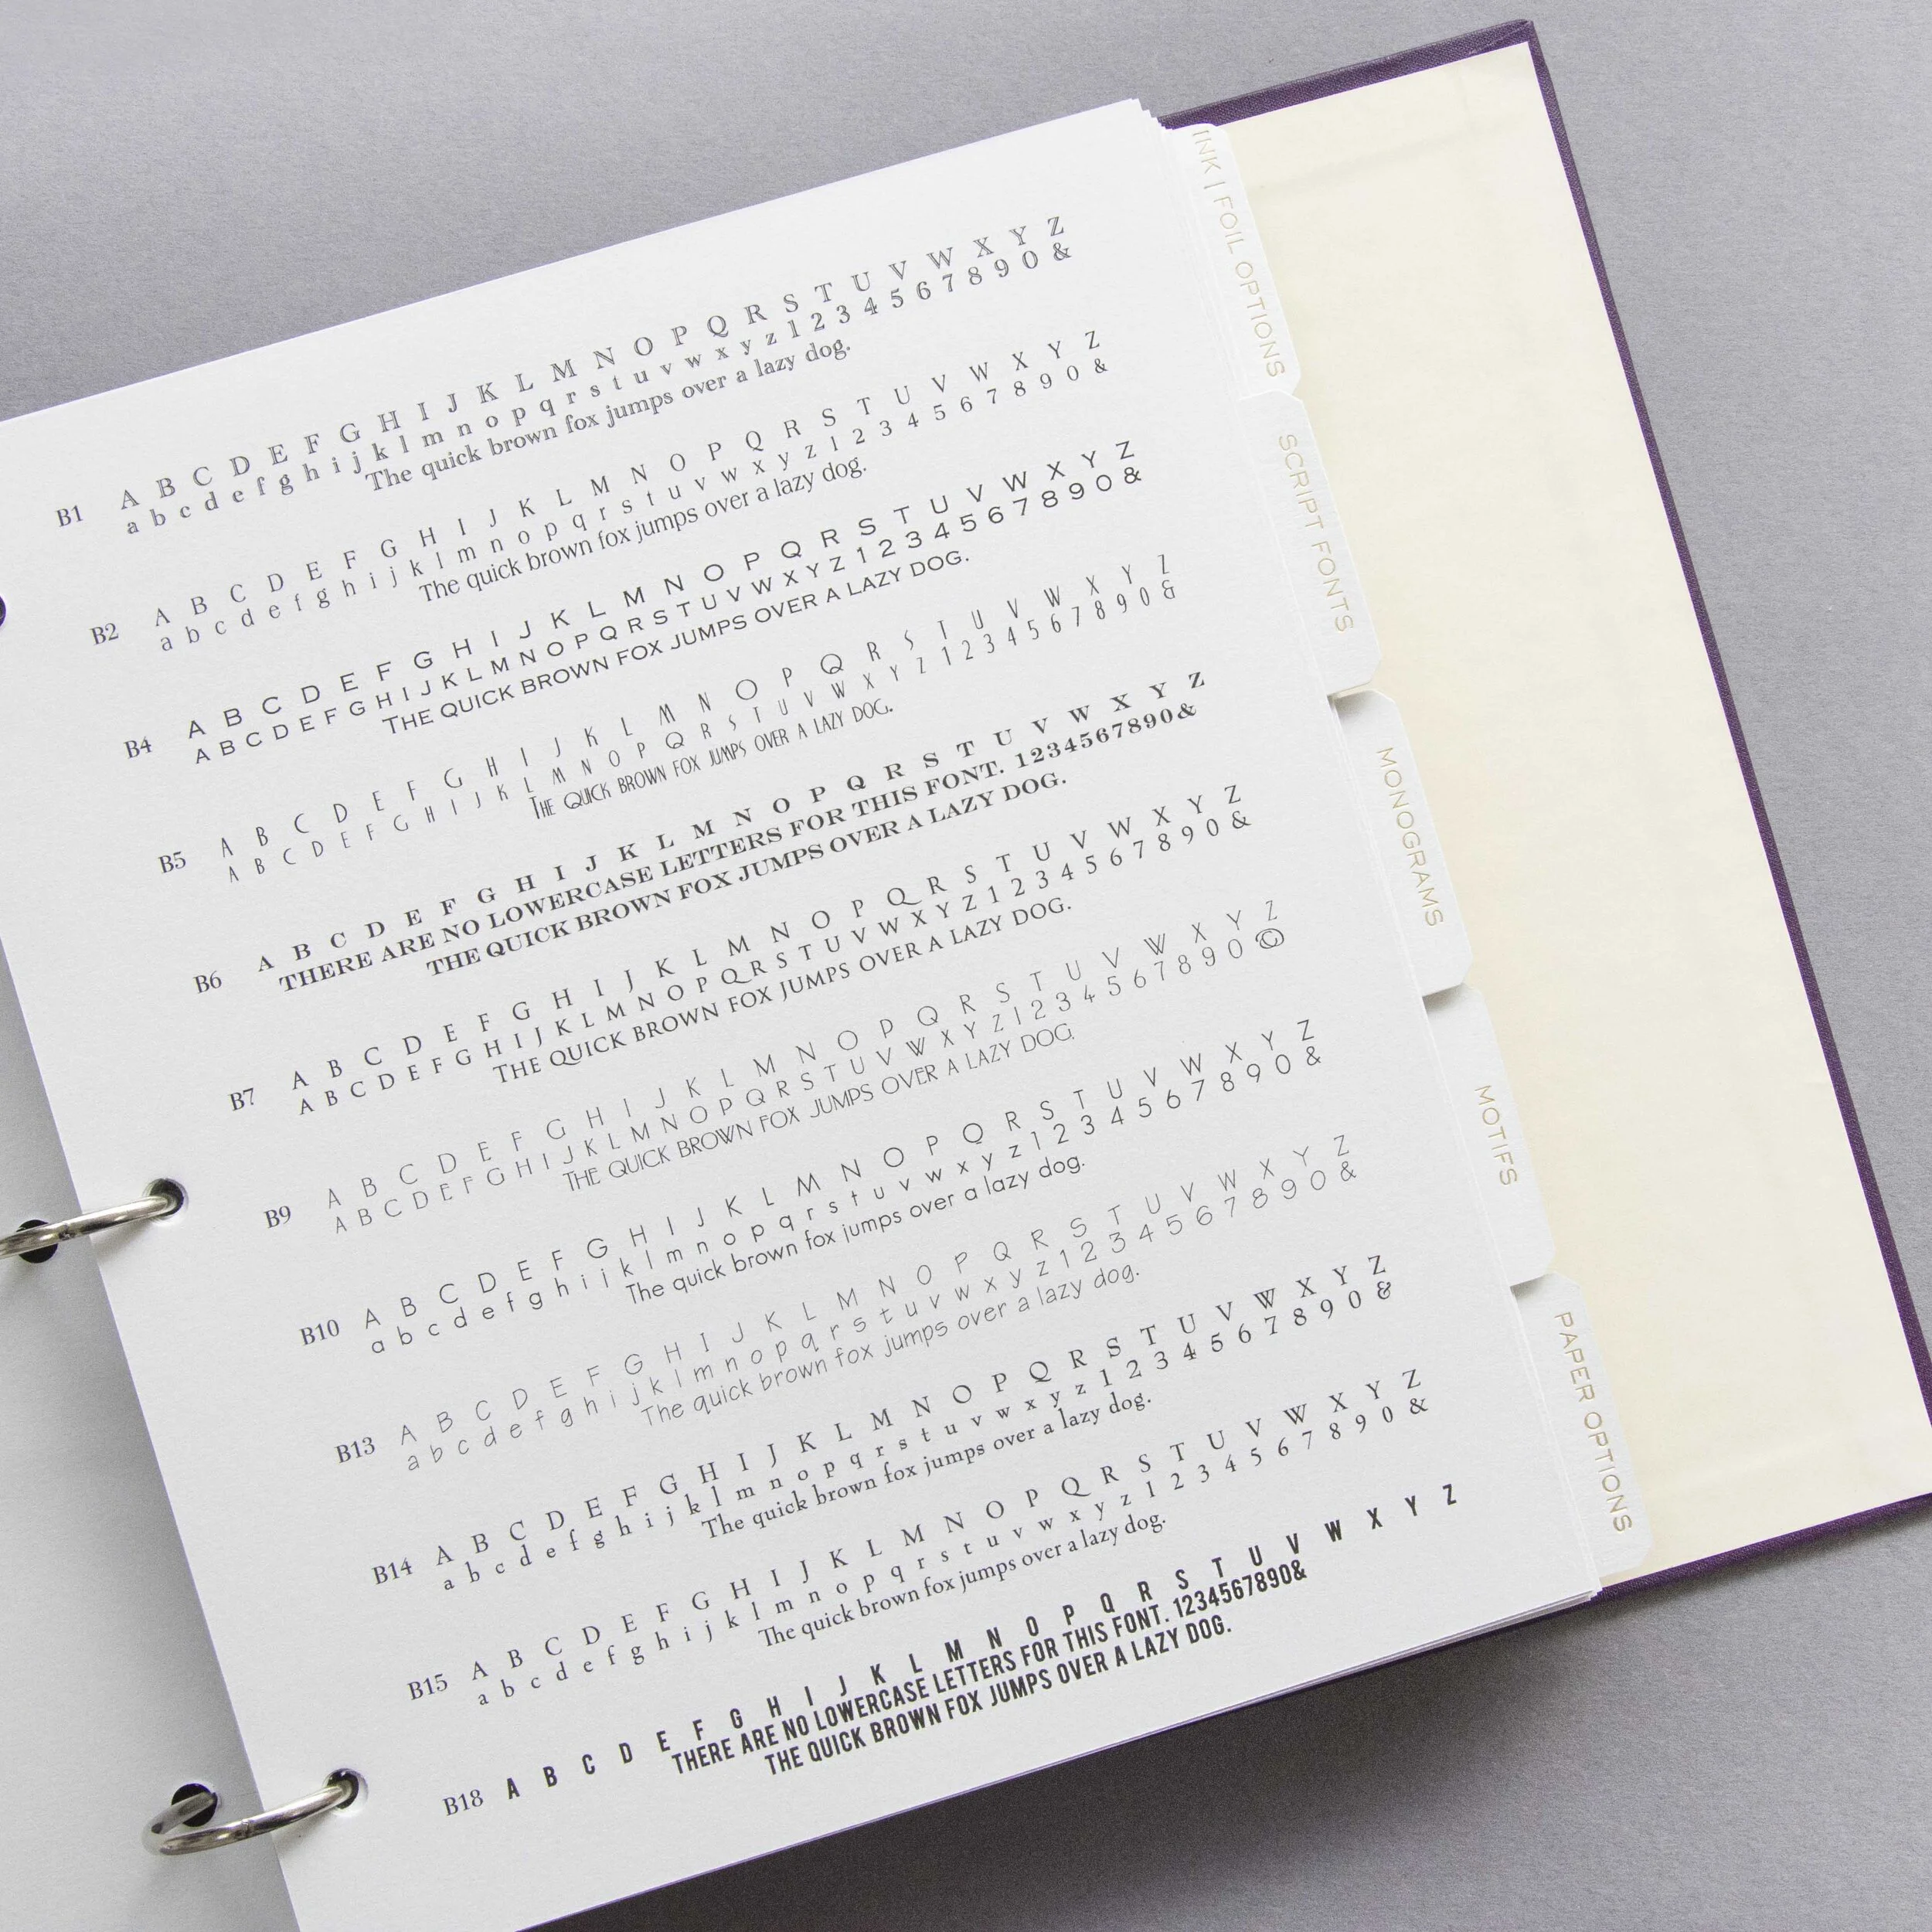 B1 A B C D E F G H I J K L M N O P Q R S T U V W X Y Z
a b c d e f g h i j k l m n o p q r s t u v w x y z 1 2 3 4 5 6 7 8 9 0 &
The quick brown fox jumps over a lazy dog.
B2 A B C D E F G H I J K L M N O P Q R S T U V W X Y Z
a b c d e f g h i j k l m n o p q r s t u v w x y z 1 2 3 4 5 6 7 8 9 0 &
The quick brown fox jumps over a lazy dog.
B4 A B C D E F G H I J K L M N O P Q R S T U V W X Y Z
A B C D E F G H I J K L M N O P Q R S T U V W X Y Z 1 2 3 4 5 6 7 8 9 0 &
THE QUICK BROWN FOX JUMPS OVER A LAZY DOG.
B5 A B C D E F G H I J K L M N O P Q R S T U V W X Y Z
A B C D E F G H I J K L M N O P Q R S T U V W X Y Z 1 2 3 4 5 6 7 8 9 0 &
THE QUICK BROWN FOX JUMPS OVER A LAZY DOG.
B6 A B C D E F G H I J K L M N O P Q R S T U V W X Y Z
THERE ARE NO LOWERCASE LETTERS FOR THIS FONT. 1234567890&
THE QUICK BROWN FOX JUMPS OVER A LAZY DOG.
B7 A B C D E F G H I J K L M N O P Q R S T U V W X Y Z
A B C D E F G H I J K L M N O P Q R S T U V W X Y Z 1 2 3 4 5 6 7 8 9 0 &
THE QUICK BROWN FOX JUMPS OVER A LAZY DOG.
B9 A B C D E F G H I J K L M N O P Q R S T U V W X Y Z
A B C D E F G H I J K L M N O P Q R S T U V W X Y Z 1 2 3 4 5 6 7 8 9 0 ©
THE QUICK BROWN FOX JUMPS OVER A LAZY DOG.
B10 A B C D E F G H I J K L M N O P Q R S T U V W X Y Z
a b c d e f g h i j k l m n o p q r s t u v w x y z 1 2 3 4 5 6 7 8 9 0 &
The quick brown fox jumps over a lazy dog.
B13 A B C D E F G H I J K L M N O P Q R S T U V W X Y Z
a b c d e f g h i j k l m n o p q r s t u v w x y z 1 2 3 4 5 6 7 8 9 0 &
The quick brown fox jumps over a lazy dog.
B14 A B C D E F G H I J K L M N O P Q R S T U V W X Y Z
a b c d e f g h i j k l m n o p q r s t u v w x y z 1 2 3 4 5 6 7 8 9 0 &
The quick brown fox jumps over a lazy dog.
B15 A B C D E F G H I J K L M N O P Q R S T U V W X Y Z
a b c d e f g h i j k l m n o p q r s t u v w x y z 1 2 3 4 5 6 7 8 9 0 &
The quick brown fox jumps over a lazy dog.
B18 A B C D E F G H I J K L M N O P Q R S T U V W X Y Z
THERE ARE NO LOWERCASE LETTERS FOR THIS FONT. 1234567890&
THE QUICK BROWN FOX JUMPS OVER A LAZY DOG.
INK | FOIL OPTIONS
SCRIPT FONTS
MONOGRAMS
MOTIFS
PAPER OPTIONS